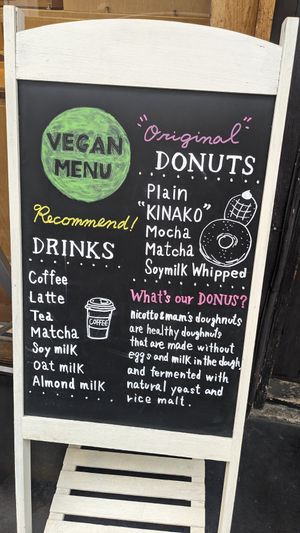 VEGAN
MENU
"Original"
DONUTS
Plain
"KINAKO"
Mocha
Matcha
Soymilk Whipped
Recommend!
DRINKS
Coffee
Latte
Tea
Matcha
Soy milk
Oat milk
Almond milk
COFFEE
What's our DONUS?
nicotto & mam's doughnuts
are healthy doughnuts
that are made without
eggs and milk in the dough
and fermented with
natural yeast and
rice malt.